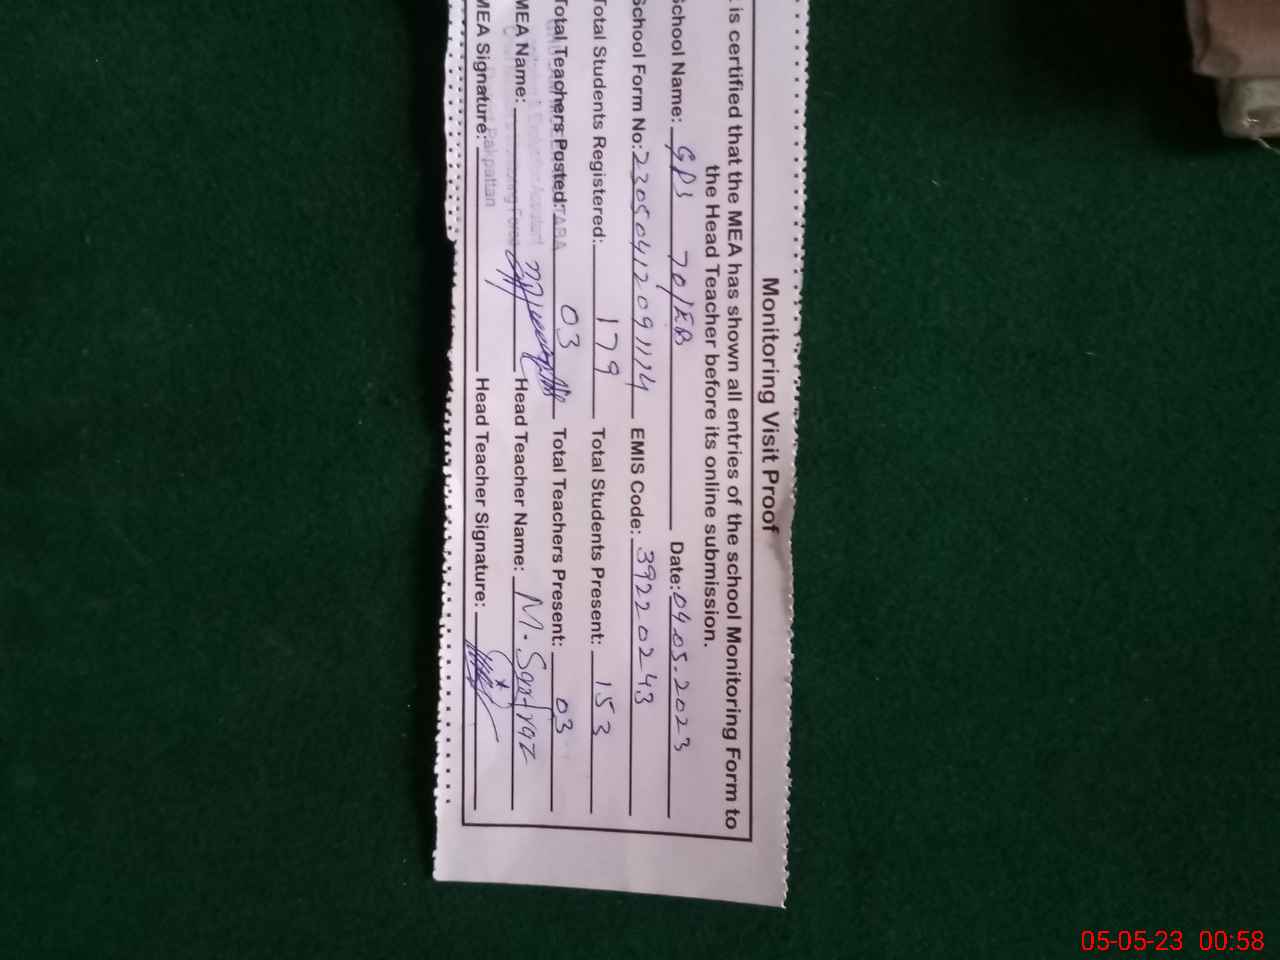 Monitoring Visit Proof
is certified that the MEA has shown all entries of the school Monitoring Form to
the Head Teacher before its online submission.
School Name: GPS 70/EB Date: 04.05.2023
School Form No: 23050412091114 EMIS Code: 39220243
Total Students Registered: 179 Total Students Present: 153
Total Teachers Posted: 03 Total Teachers Present: 03
MEA Name: Head Teacher Name: M. Sarfraz
MEA Signature: Head Teacher Signature:
Pakpattan
05-05-23 00:58